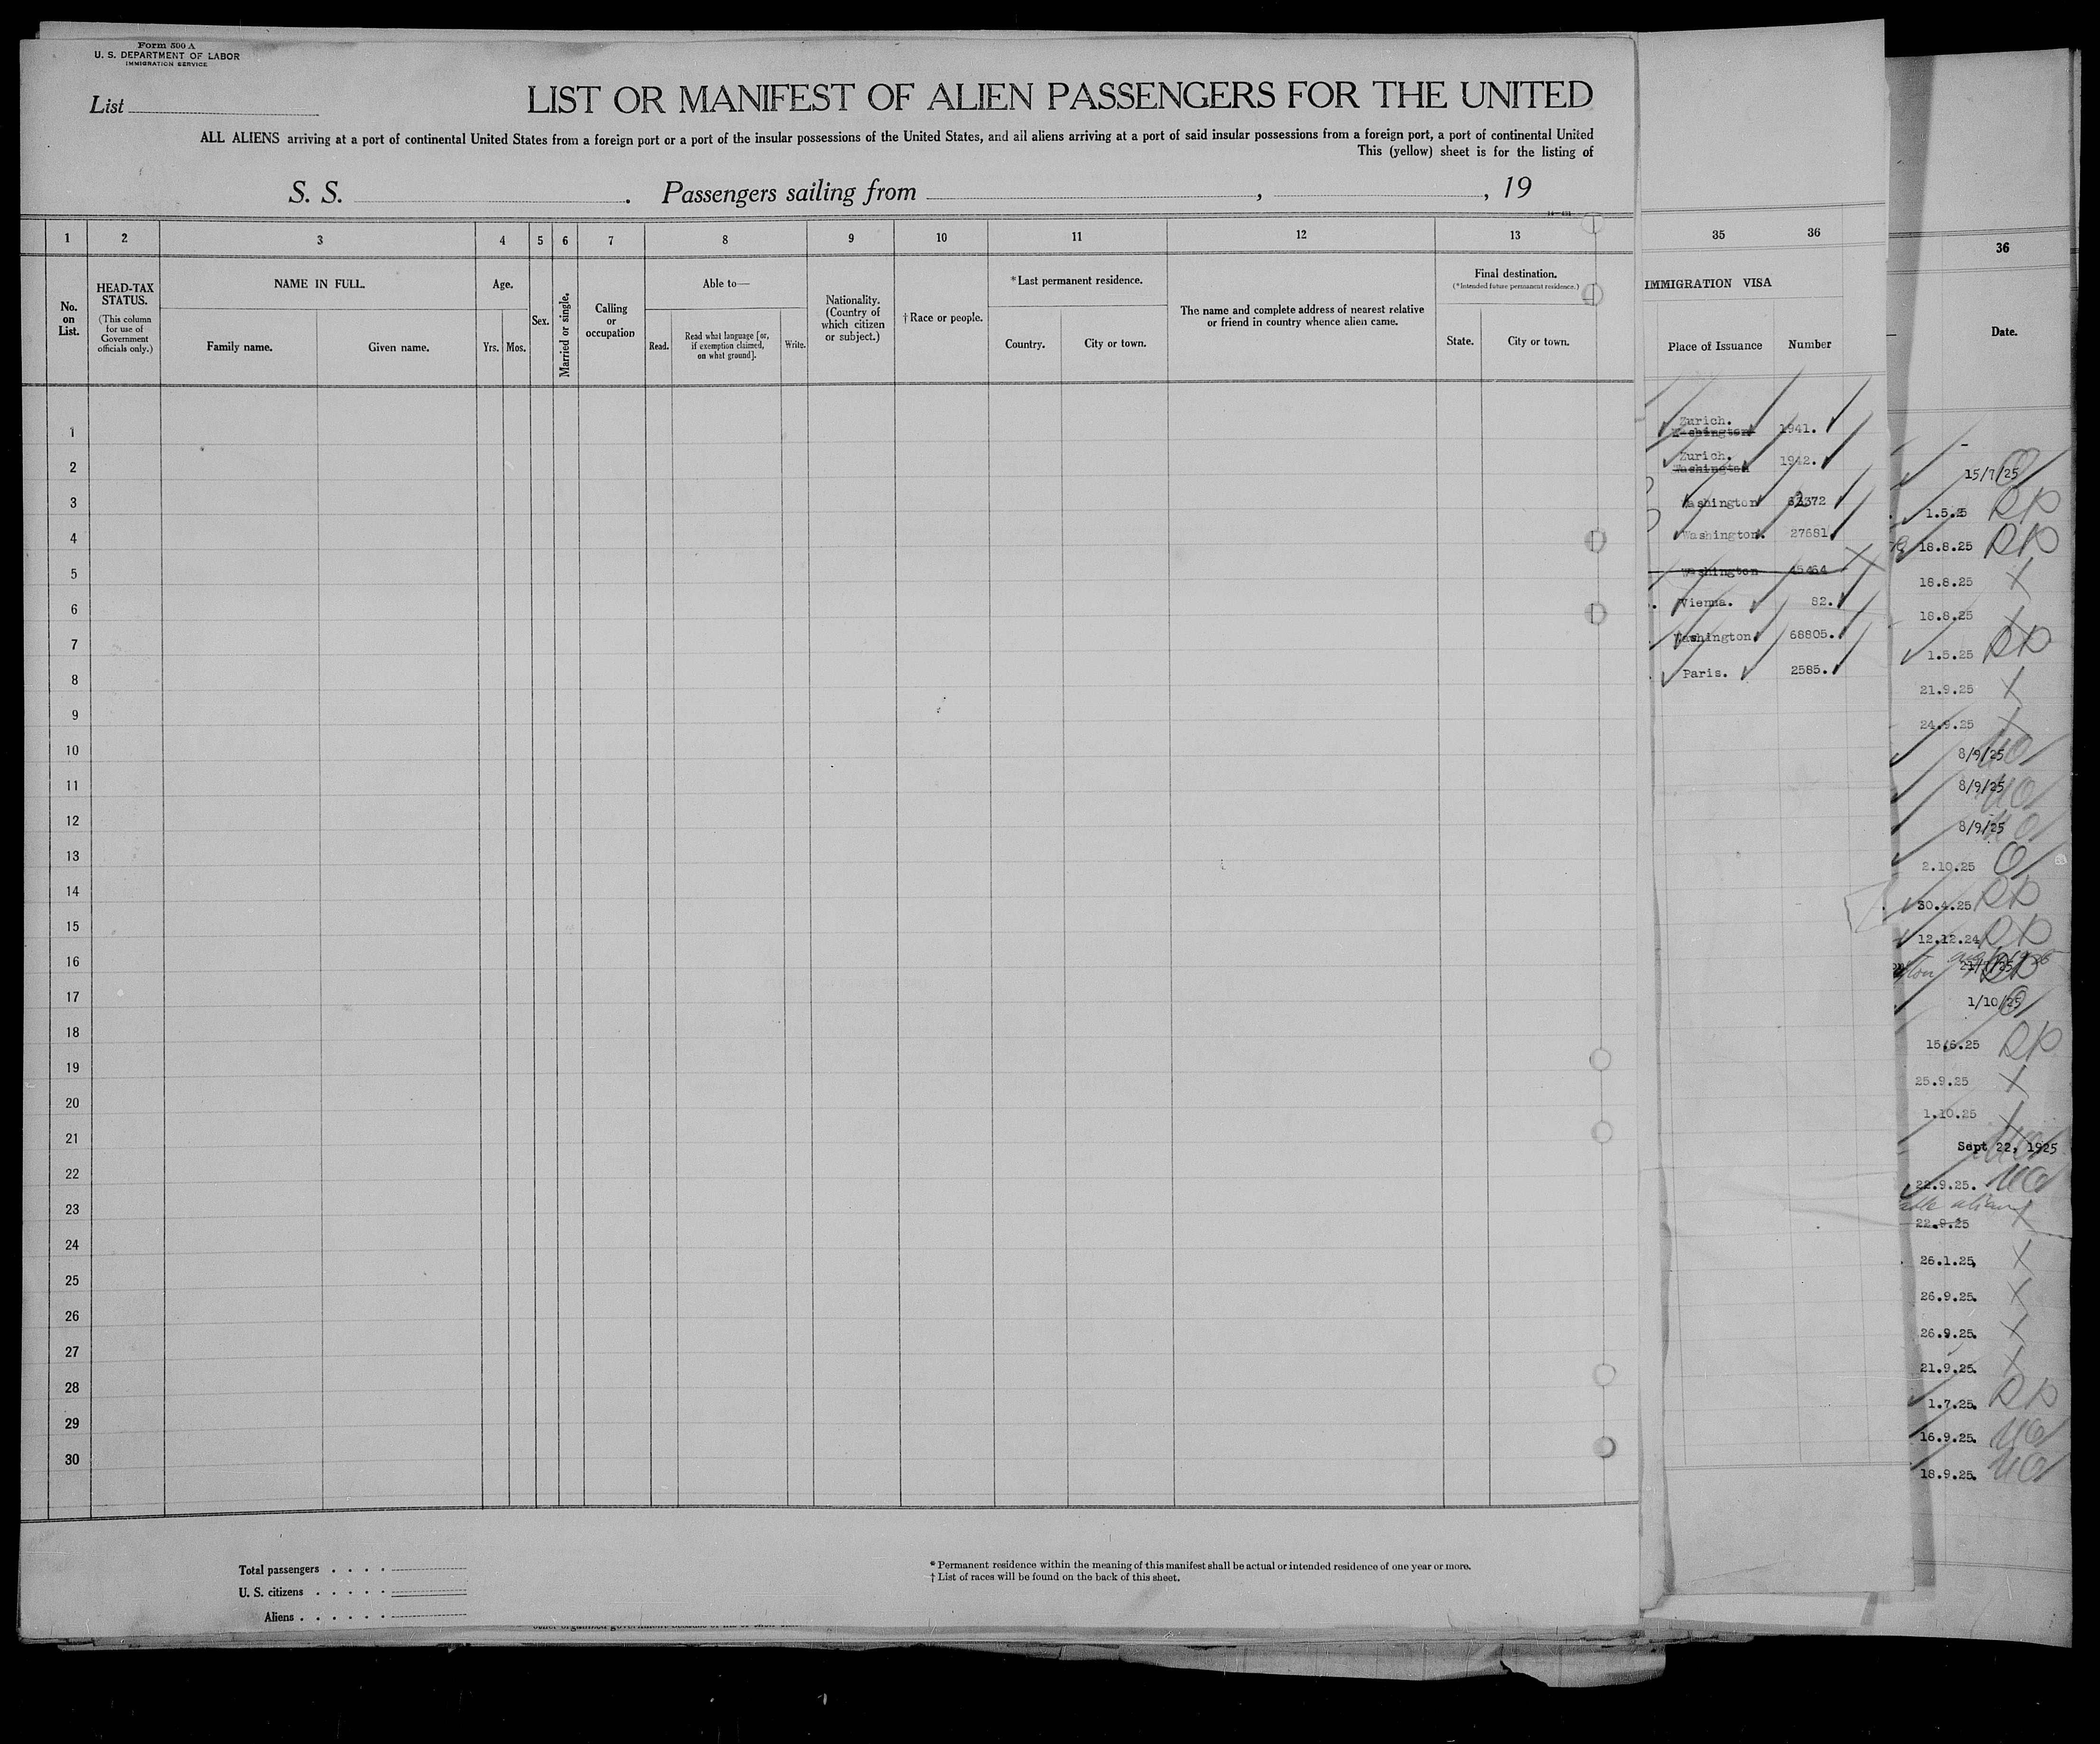 Form 500 A
U. S. DEPARTMENT OF LABOR
IMMIGRATION SERVICE
List
LIST OR MANIFEST OF ALIEN PASSENGERS FOR THE UNITED
ALL ALIENS arriving at a port of continental United States from a foreign port or a port of the insular possessions of the United States, and all aliens arriving at a port of said insular possessions from a foreign port, a port of continental United
This (yellow) sheet is for the listing of
S. S. . Passengers sailing from , , 19
1 2 3 4 5 6 7 8 9 10 11 12 13
HEAD-TAX STATUS.
(This column for use of Government officials only.)
No. on List.
NAME IN FULL.
Family name. Given name.
Age.
Yrs. Mos.
Sex.
Married or single.
Calling or occupation
Able to—
Read. Read what language [or, if exemption claimed, on what ground]. Write.
Nationality. (Country of which citizen or subject.)
†Race or people.
*Last permanent residence.
Country. City or town.
The name and complete address of nearest relative or friend in country whence alien came.
Final destination.
(*Intended future permanent residence.)
State. City or town.
1
2
3
4
5
6
7
8
9
10
11
12
13
14
15
16
17
18
19
20
21
22
23
24
25
26
27
28
29
30
Total passengers . . . .
U. S. citizens . . . . .
Aliens . . . . . .
* Permanent residence within the meaning of this manifest shall be actual or intended residence of one year or more.
† List of races will be found on the back of this sheet.
35 36
IMMIGRATION VISA
Place of Issuance Number
Zurich.
Washington 1941.
Zurich.
Washington 1942.
Washington 62372
Washington. 27681
Washington 45464
Vienna. 82.
Washington. 68805.
Paris. 2585.
36
Date.
15/7/25
1.5.25 RP
18.8.25 RP
18.8.25 X
18.8.25 X
1.5.25 RP
21.9.25 X
24.9.25 X
8/9/25
8/9/25
8/9/25
2.10.25
30.4.25 RP
12.12.24 RP
1/10/25
15.6.25 RP
25.9.25 X
1.10.25 X
Sept 22, 1925
22.9.25.
22.9.25 X
26.1.25. X
26.9.25. X
26.9.25. X
21.9.25. X
1.7.25. RP
16.9.25.
18.9.25.